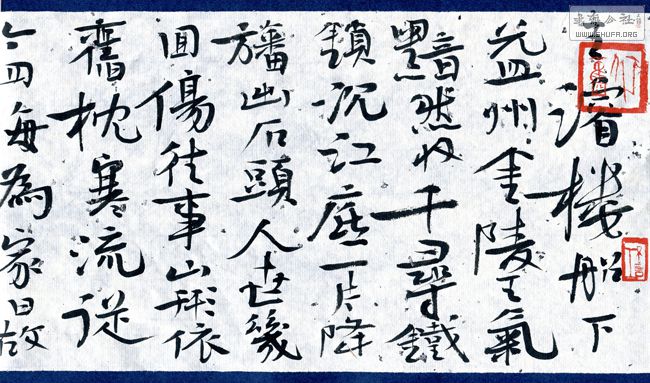 王濬楼船下
益州金陵王氣
黯然收千尋鐵
鎖沉江底一片降
旛出石頭人世幾
回傷往事山形依
舊枕寒流從
今四海為家日故
WWW.SHUFA.ORG